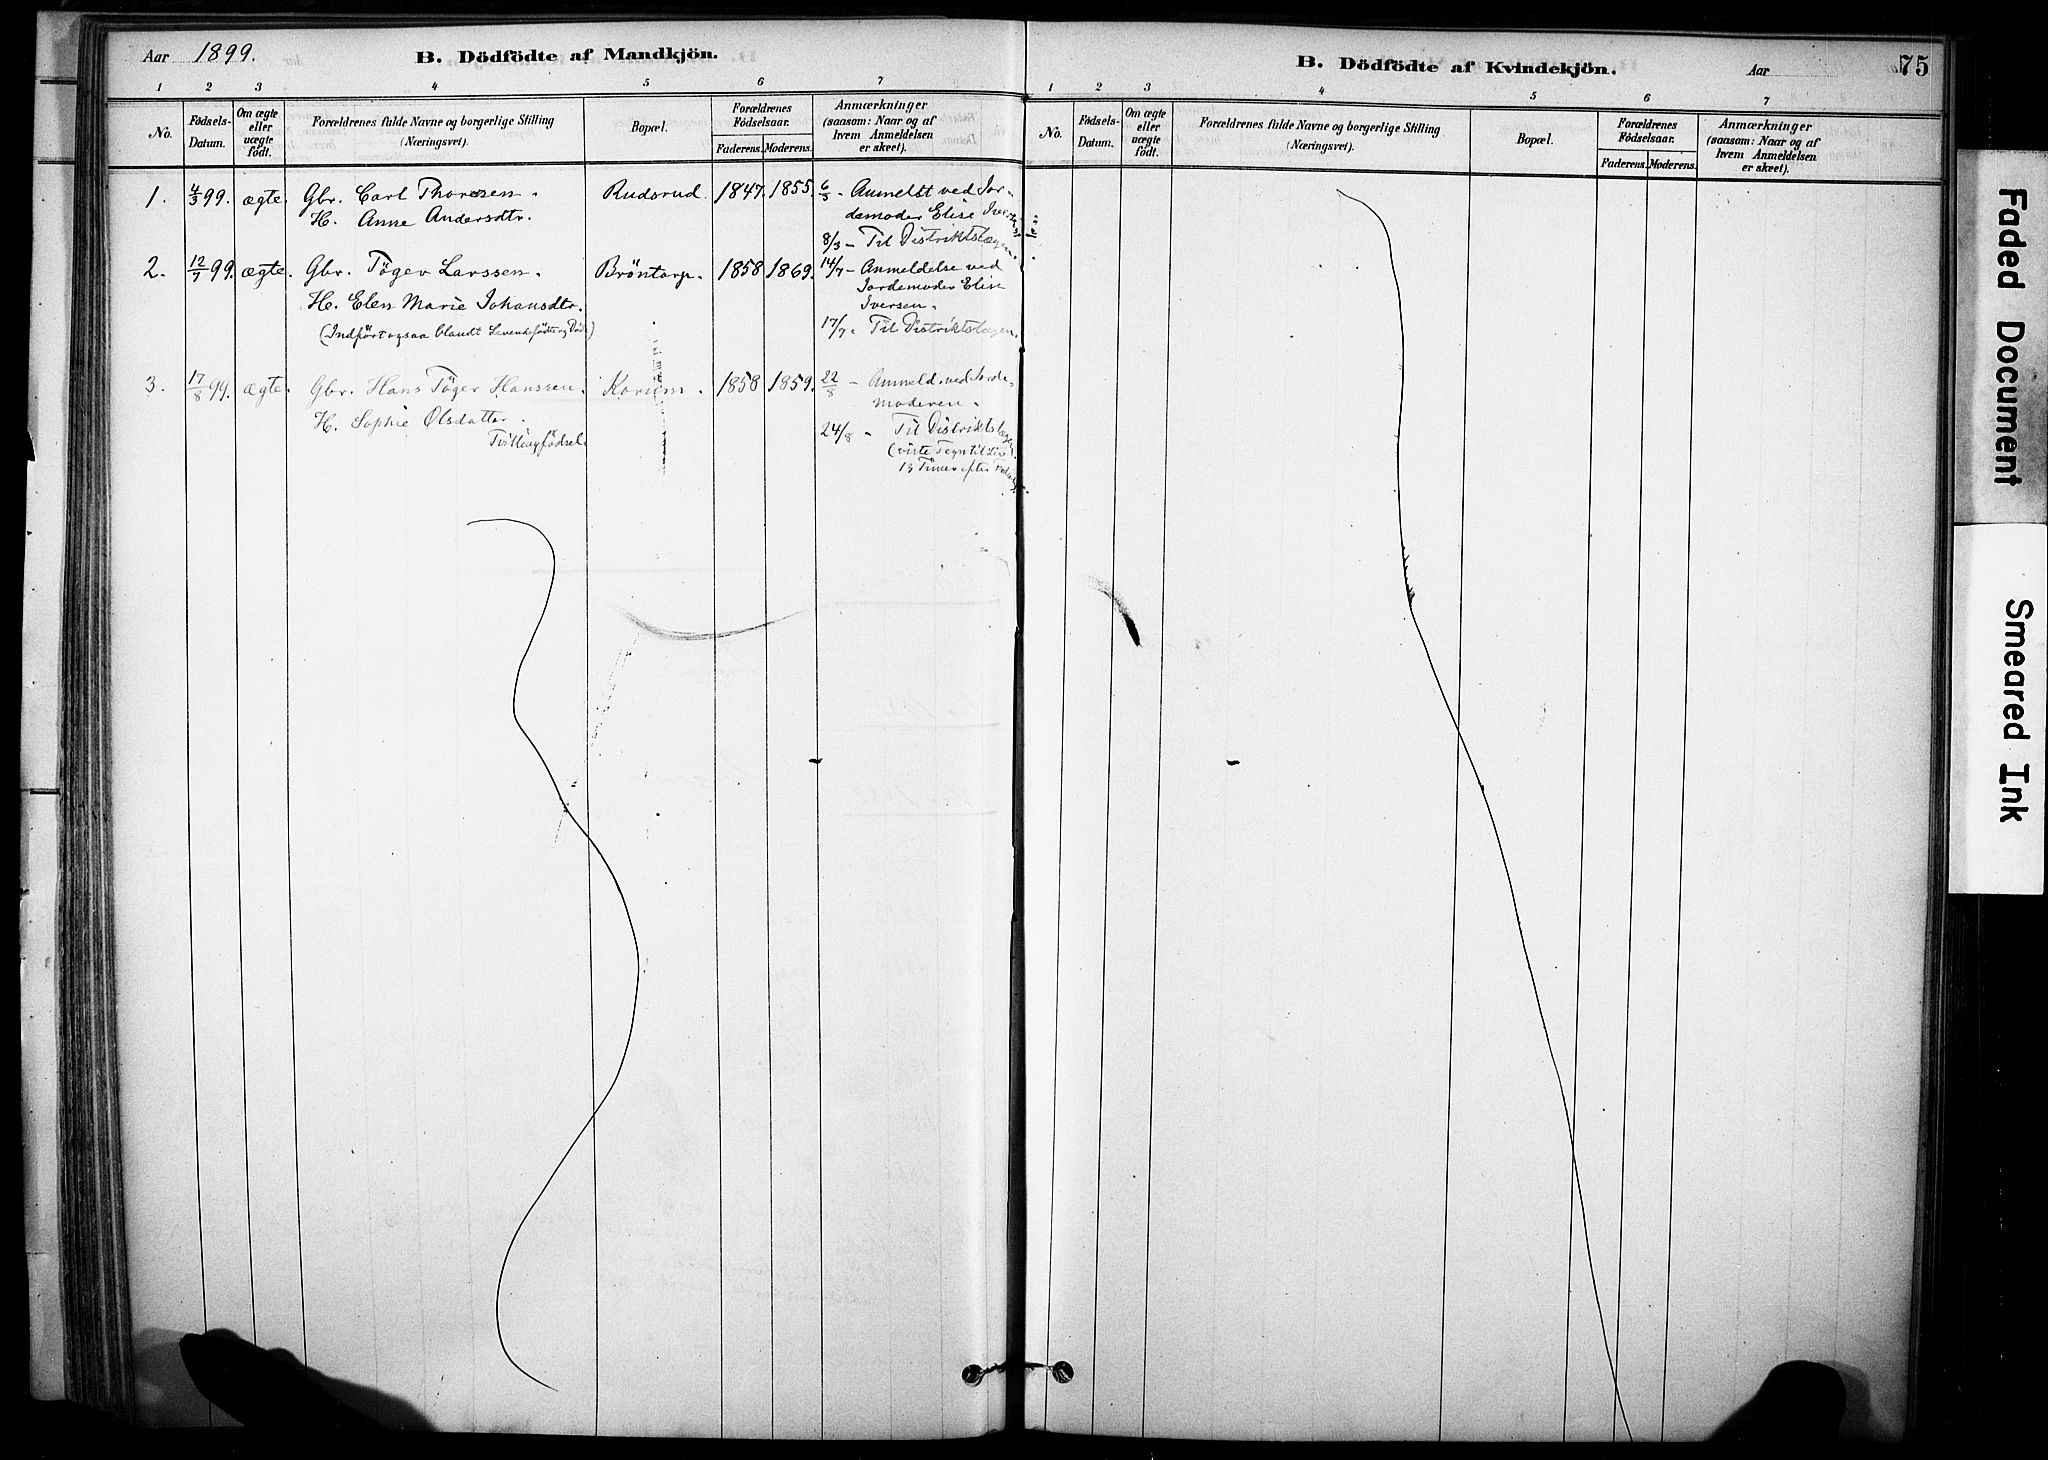 Aar 1899.
B. Dödfödte af Mandkjön.
1 2 3 4 5 6 7
No.
Födsels-Datum.
Om ægte eller uægte födt.
Forældrenes fulde Navne og borgerlige Stilling (Næringsvei).
Bopæl.
Forældrenes Födselsaar.
Faderens. Moderens.
Anmærkninger (saasom: Naar og af hvem Anmeldelsen er skeet).
1. 4/3 99. ægte. Gbr. Carl Thoresen. Rudsrud. 1847. 1855. 6/3 - Anmeldt ved Jor-
H. Anne Andersdtr. demoder Elise Iversen
8/3 - Til Distriktslægen.
2. 12/7 99. ægte. Gbr. Töger Larssen. Bröntorp. 1858 1869. 14/7 - Anmeldelse ved
H. Elen Marie Johansdtr. Jordemoder Elise
Iversen.
(Indført ogsaa blandt Levendefödte og Döde)
17/7. Til Distriktslægen.
3. 17/8 99. ægte. Gbr. Hans Töger Hanssen. 1858 1859. 22/8 - Anmeld. ved Jorde-
H. Sophie Olsdatter. moderen.
Tvillingfödsel. 24/8 - Til Distriktslægen
(viste Tegn til Liv
13 Timer efter
B. Dödfödte af Kvindekjön.
Aar
75
1 2 3 4 5 6 7
No.
Födsels-Datum.
Om ægte eller uægte födt.
Forældrenes fulde Navne og borgerlige Stilling (Næringsvei).
Bopæl.
Forældrenes Födselsaar.
Faderens. Moderens.
Anmærkninger (saasom: Naar og af hvem Anmeldelsen er skeet).
Faded Document
Smeared Ink